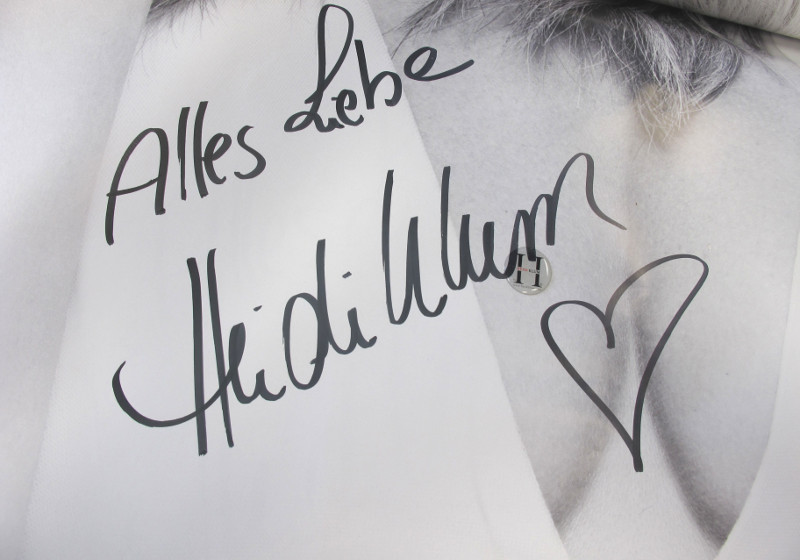 Alles Liebe
Heidi Klum
H